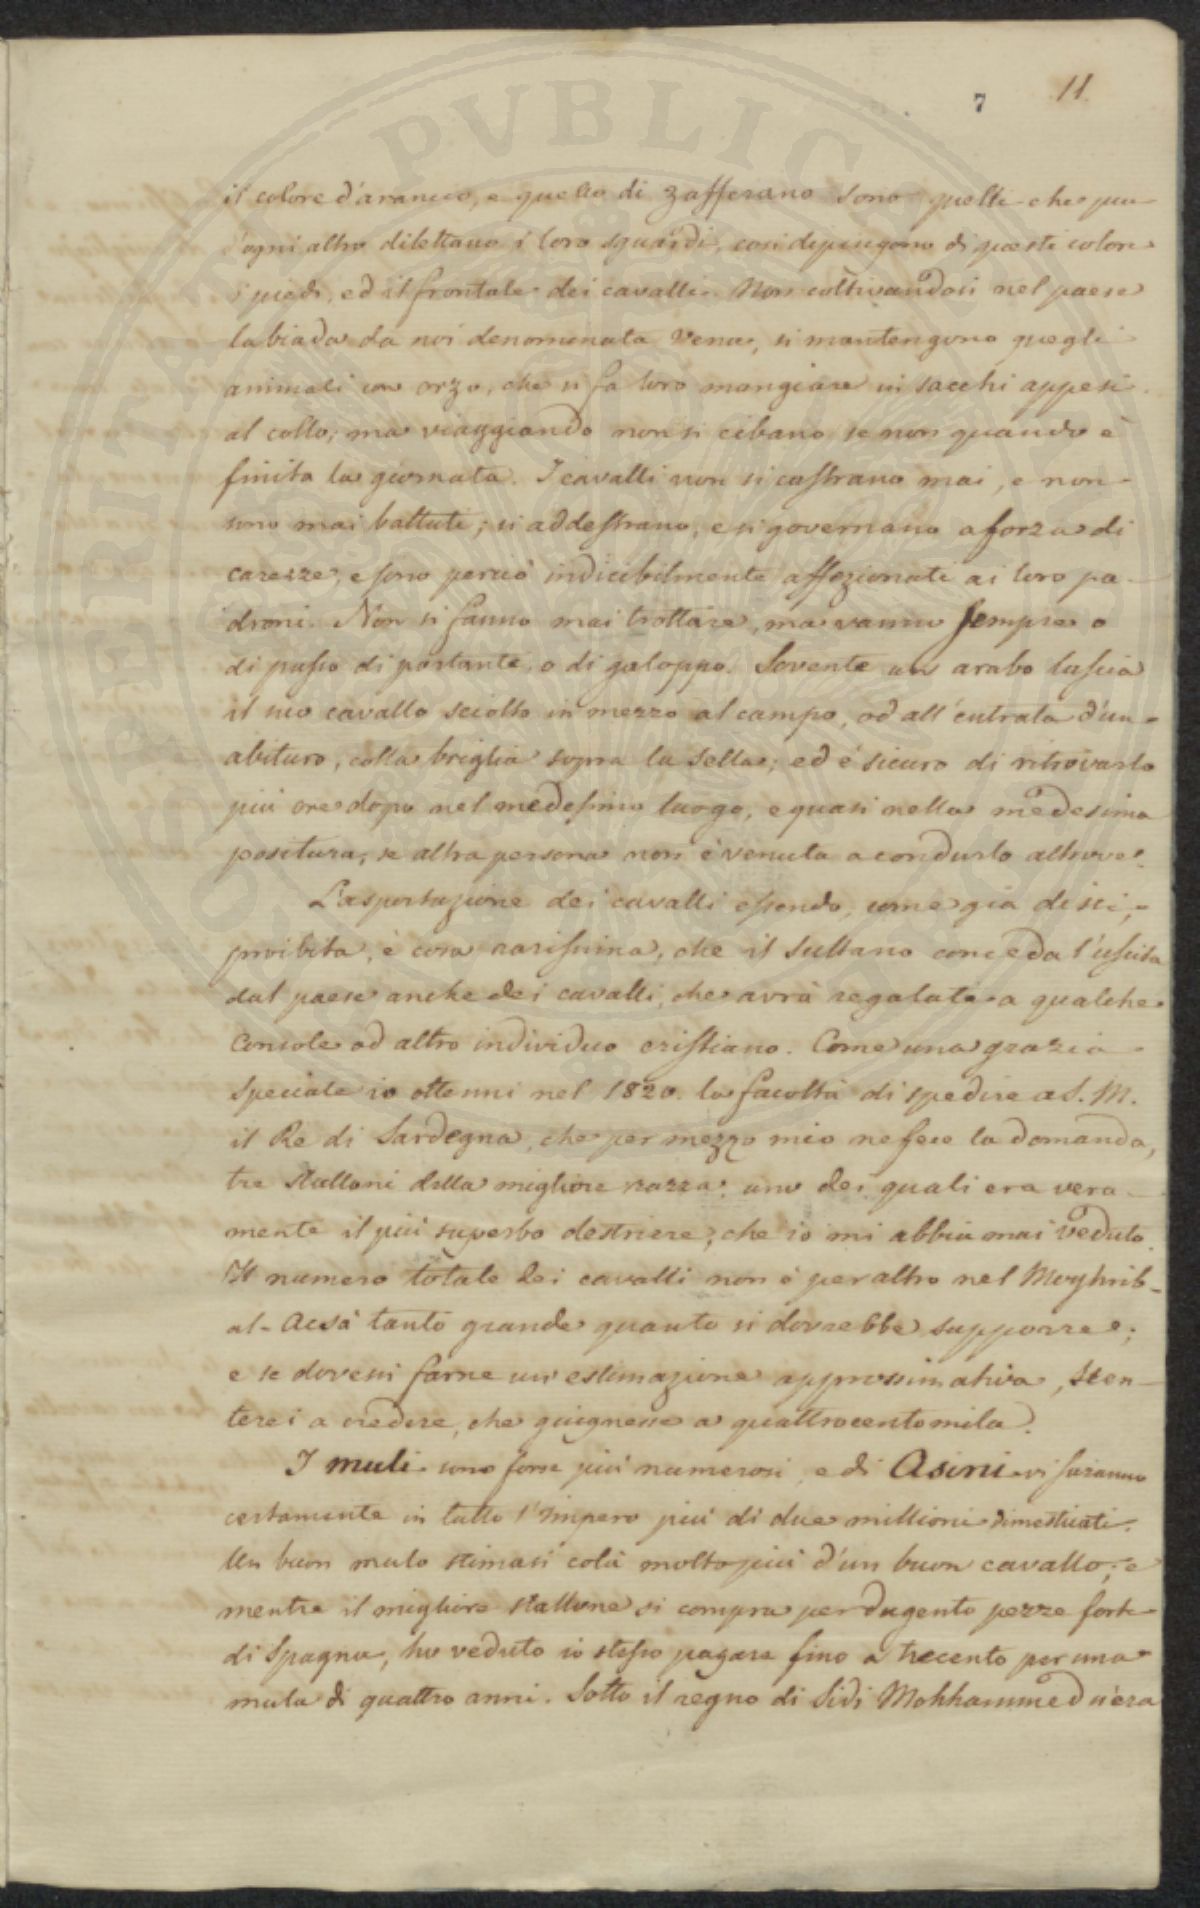 7 11
il colore d'arancio, e quello di zafferano sono quelli che piu
d'ogni altro dilettano i loro sguardi, così dipingono di questi colori
i piedi, ed il frontale dei cavalli. Non coltivandosi nel paese
la biada da noi denominata Vena, si mantengono quegli
animali con orzo, che si fa loro mangiare in sacchi appesi
al collo; ma viaggiando non si cibano, se non quando è
finita la giornata. I cavalli non si castrano mai, e non
sono mai battuti; si addestrano, e si governano a forza di
carezze, e sono perciò indicibilmente affezionati ai loro pa-
droni. Non si fanno mai trottare, ma vanno sempre o
di passo di portante, o di galoppo. Sovente un arabo lascia
il suo cavallo sciolto in mezzo al campo, od all'entrata d'un
abituro, colla briglia sopra la sella; ed è sicuro di ritrovarlo
più ore dopo nel medesimo luogo, e quasi nella medesima
positura, se altra persona non è venuta a condurlo altrove.
L'asportazione dei cavalli essendo, come già dissi,
proibita, è cosa rarissima, che il Sultano conceda l'uscita
dal paese anche dei cavalli, che avrà regalati a qualche
Console od altro individuo cristiano. Come una grazia
speciale io ottenni nel 1820. la facoltà di spedire a S. M.
il Re di Sardegna, che per mezzo mio ne fece la domanda,
tre stalloni della migliore razza: uno dei quali era vera-
mente il più superbo destriere, che io mi abbia mai veduto.
Il numero totale dei cavalli non è per altro nel Moghrib-
al-Acsà tanto grande quanto si dovrebbe supporre;
e se dovessi farne un'estimazione approssimativa, sten-
terei a credere, che giugnesse a quattrocentomila.
I muli sono forse più numerosi, e di Asini vi saranno
certamente in tutto l'Impero più di due millioni dimesticati.
Un buon mulo stimasi colà molto più d'un buon cavallo; e
mentre il migliore stallone si compra per dugento pezze forti
di Spagna, ho veduto io stesso pagare fino a trecento per una
mula di quattro anni. Sotto il regno di Sidi Mohhammed n'era
PROSPERITATI PVBLICAE